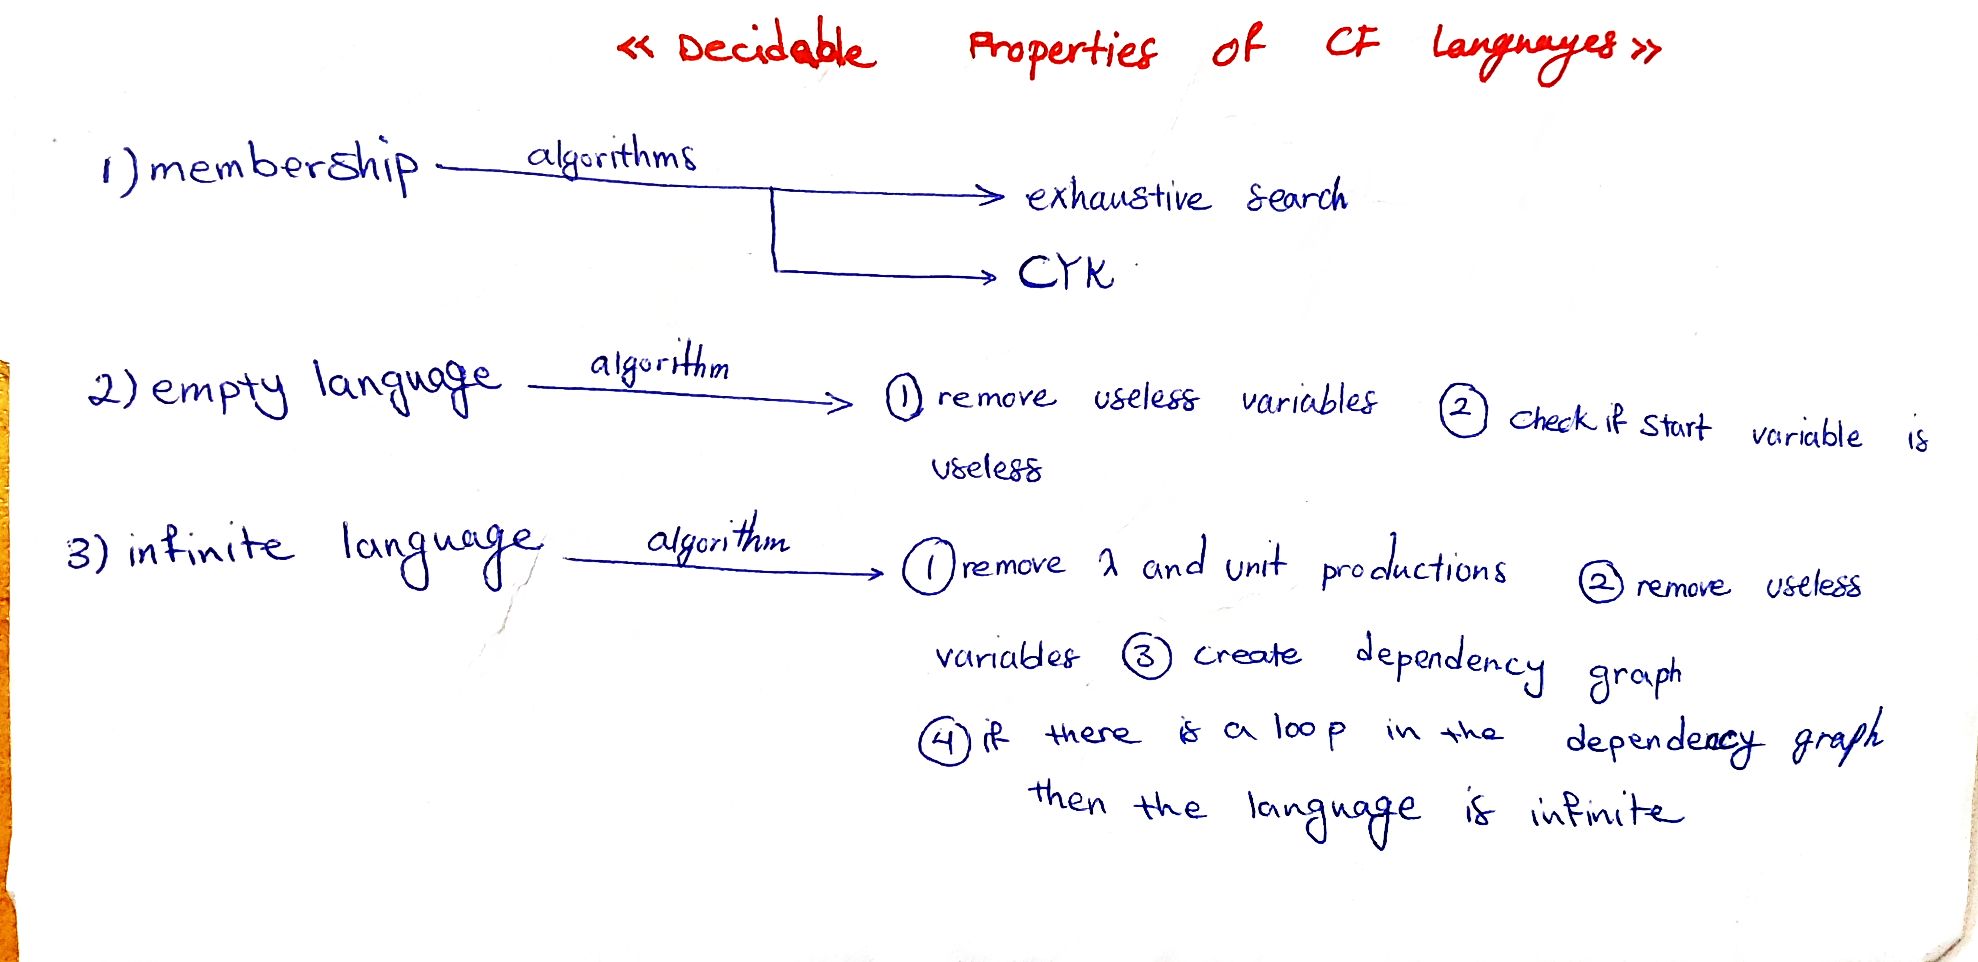 << Decidable Properties of CF Languages >>
1) membership algorithms exhaustive search
CYK
2) empty language algorithm ① remove useless variables ② check if start variable is
useless
3) infinite language algorithm ① remove λ and unit productions ② remove useless
variables ③ create dependency graph
④ if there is a loop in the dependency graph
then the language is infinite